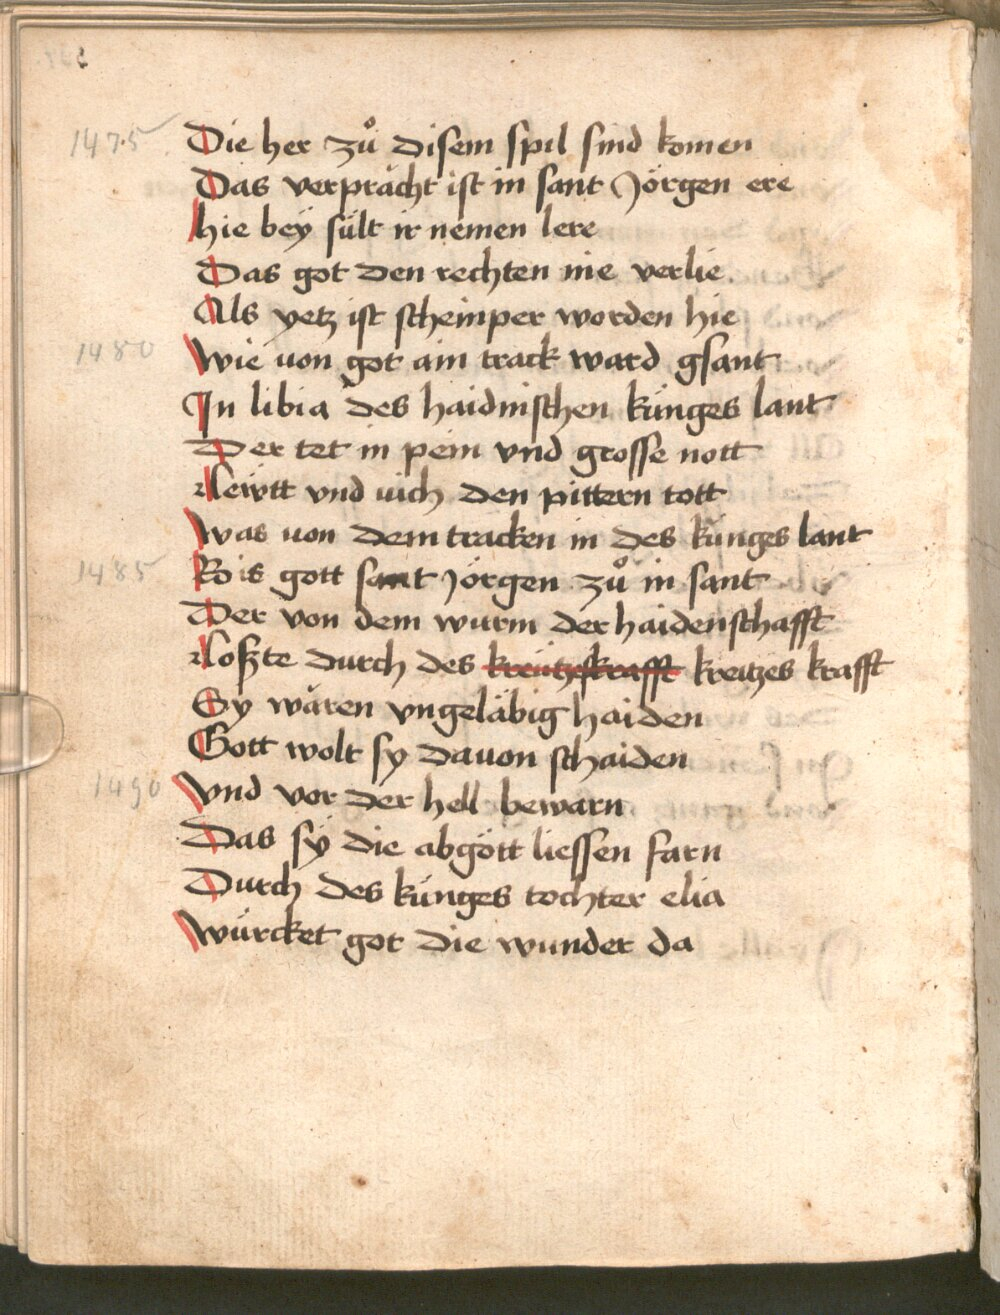 1475 Die her zů disem spil sind komen
Das verprächt ist in sant Jörgen ere
hie beÿ sült ir nemen lere
Das got den rechten nie verlie
Als yetz ist scheinper worden hie
1480 Wie uon got ain track ward gsant
In libia des haidnischen künges lant
Der tet in pein vnd grosse nott
lewtt vnd uich den pittern tott
Was uon dem tracken in des künges lant
1485 Bis gott sant Jörgen zů in sant
Der von dem wurm der haidenschafft
loßte durch des kreützskrafft kreitzes krafft
Sy wären vngeläbig haiden
Gott wolt sy dauon schaiden
1490 Vnd vor der hell bewarn
Das sÿ die abgött liessen farn
Durch des künges tochter elia
Würcket got die wunder da